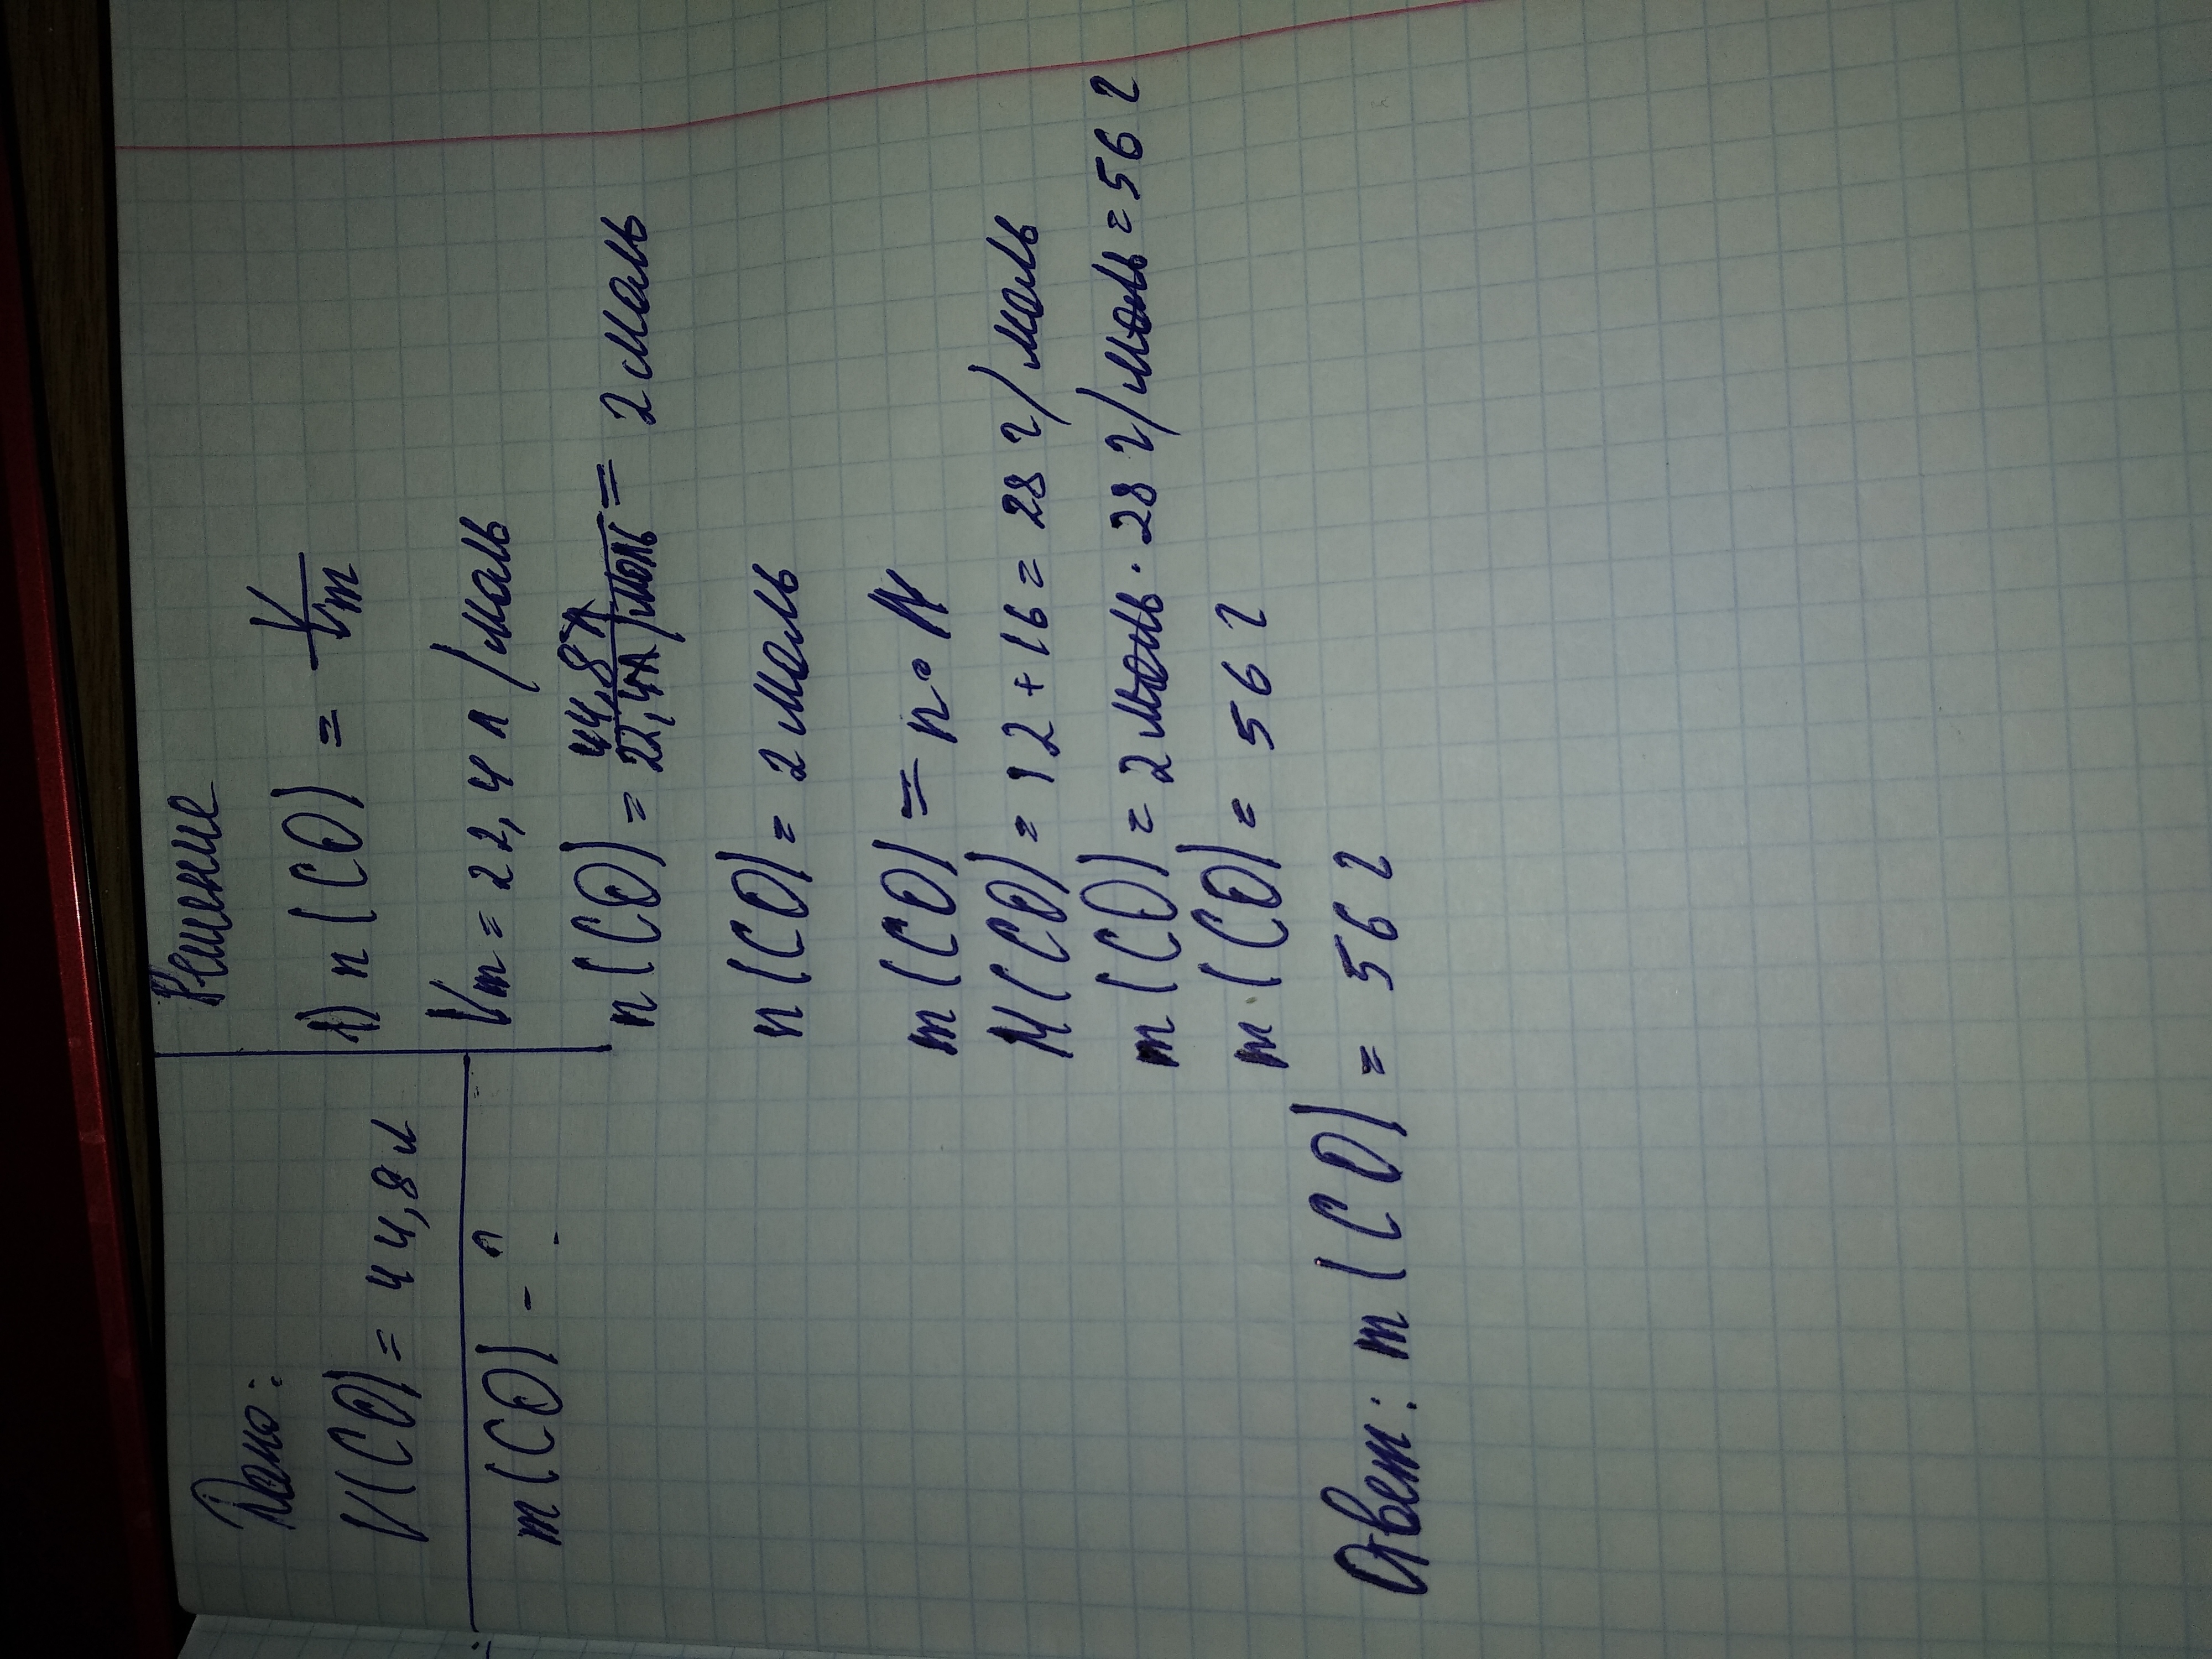 Дано:
V(CO) = 44,8 л
m(CO) - ?
Решение
1) n(CO) = V/Vm
Vm = 22,4 л/моль
n(CO) = 44,8 л / 22,4 л/моль = 2 моль
n(CO) = 2 моль
m(CO) = n • M
M(CO) = 12 + 16 = 28 г/моль
m(CO) = 2 моль · 28 г/моль = 56 г
m(CO) = 56 г
Ответ: m(CO) = 56 г